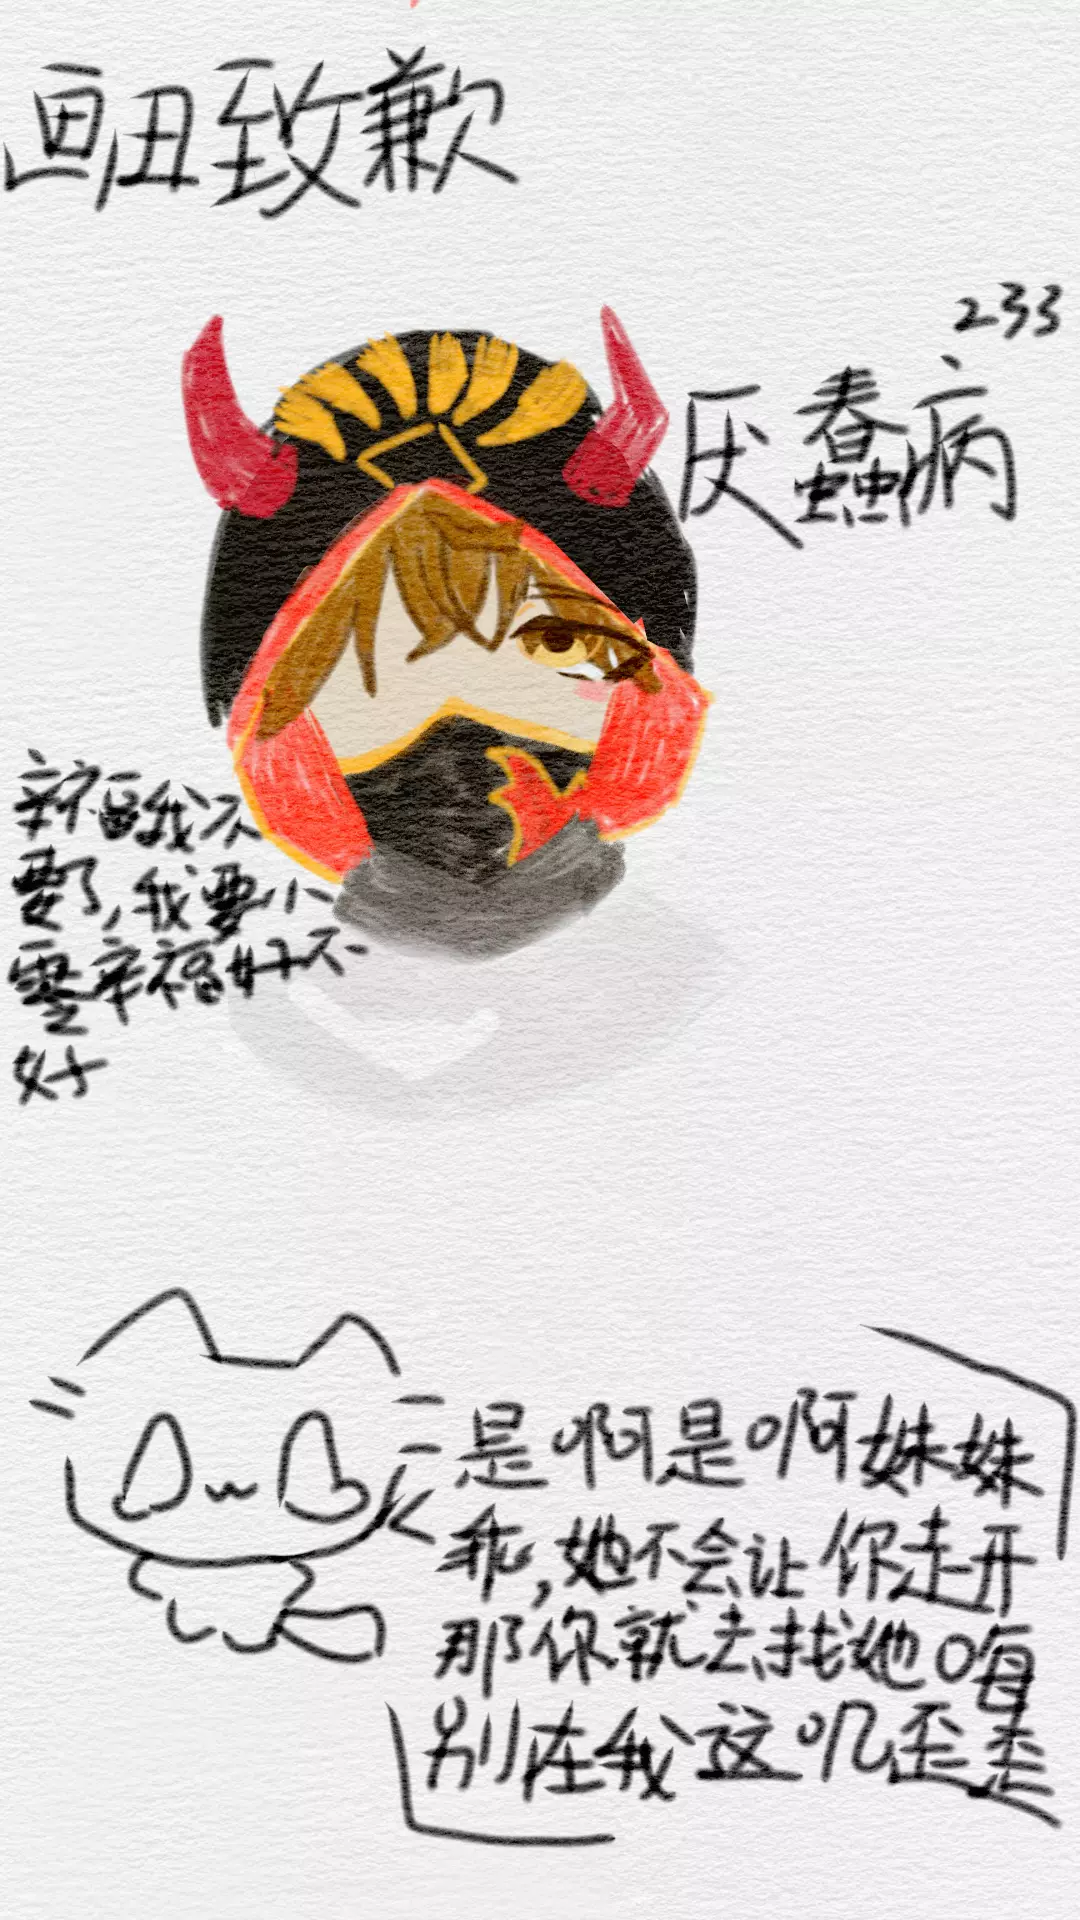 画丑致歉
233
厌蠢病
幸福我不
要了,我要小
零幸福好不
好
是啊是啊妹妹
乖,她不会让你走开
那你就去找她咱
别在我这叽歪歪